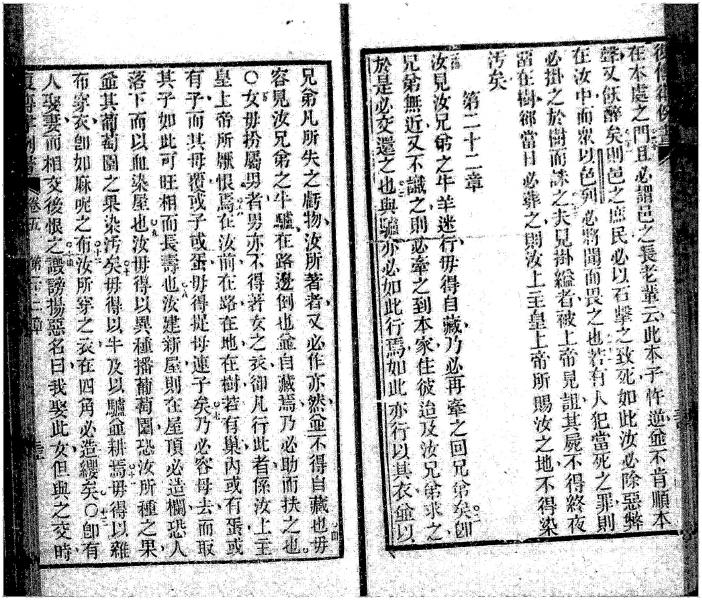 在本處之門且必謂邑之長老輩云此本子忤逆並不肯順本
聲又飲醉矣則邑之庶民必以石擊之致死如此汝必除惡弊
在汝中而衆以色列必將聞而畏之也若有人犯當死之罪則
必掛之於樹而誅之夫見掛縊者被上帝見詛其屍不得終夜
當在樹卽當日必葬之因汝上主皇上帝所賜汝之地不得染
汚矣
第二十二章
汝見汝兄弟之牛羊迷行毋得自藏乃必再牽之回兄弟矣卽
兄弟無近又不識之則必牽之到本家住彼迨及汝兄弟求之
於是必交還之也與驢亦必如此行焉如此亦行以其衣並以
兄弟凡所失之虧物汝所著者又必作亦然並不得自藏也毋
容見汝兄弟之牛驢在路邊倒也並自藏焉乃必助而扶之也
○女毋扮屬男者男亦不得著女之衣卻凡行此者係汝上主
皇上帝所厭恨焉在汝前在路在地在樹若有巢內或有蛋或
有子而其母覆或子或蛋毋得提母連子矣乃必容母去而取
其子如此可旺相而長壽也汝建新屋則在屋頂必造欄恐人
落下而以血染屋也汝毋得以異種播葡萄園恐汝所種之果
並其葡萄園之果染汚矣毋得以牛及以驢並耕焉毋得以雜
布穿衣卽如麻呢之布汝所穿之衣在四角必造纓矣○卽有
人娶妻而相交後恨之譭謗揚惡名曰我娶此女但與之交時
卷五 第二十二章